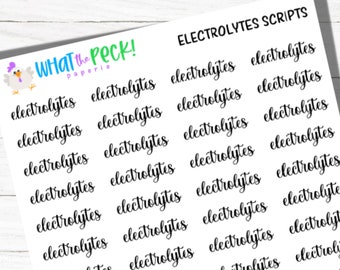 WHAT the PECK!
paperie
ELECTROLYTES SCRIPTS
electrolytes electrolytes electrolytes electrolytes
electrolytes electrolytes electrolytes electrolytes
electrolytes electrolytes electrolytes electrolytes
electrolytes electrolytes electrolytes electrolytes
electrolytes electrolytes electrolytes electrolytes
electrolytes electrolytes electrolytes electrolytes
electrolytes electrolytes electrolytes
electrolytes